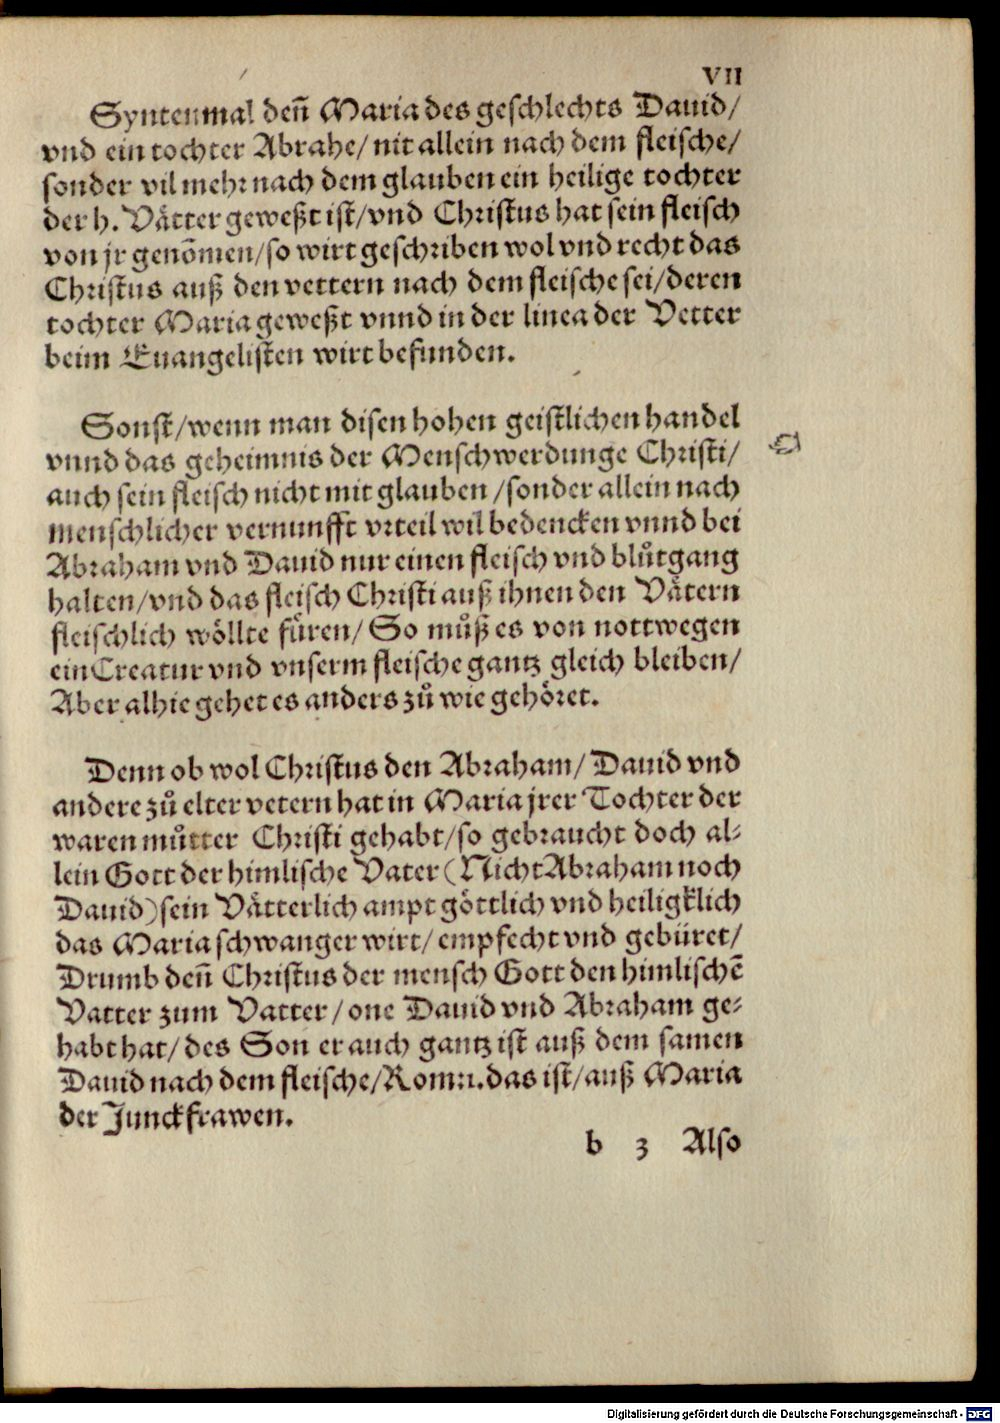 VII
Syntenmal deñ Maria des geschlechts Dauid/
vnd ein tochter Abrahe/ nit allein nach dem fleische/
sonder vil mehr nach dem glauben ein heilige tochter
der h. Vätter geweßt ist/ vnd Christus hat sein fleisch
von jr genõmen/ so wirt geschriben wol vnd recht das
Christus auß den vettern nach dem fleische sei/ deren
tochter Maria geweßt vnnd in der linea der Vetter
beim Euangelisten wirt befunden.
Sonst/ wenn man disen hohen geistlichen handel
vnnd das geheimnis der Menschwerdunge Christi/
auch sein fleisch nicht mit glauben / sonder allein nach
menschlicher vernunfft vrteil wil bedencken vnnd bei
Abraham vnd Dauid nur einen fleisch vnd blůtgang
halten/ vnd das fleisch Christi auß ihnen den Vätern
fleischlich wöllte füren/ So můß es von nottwegen
ein Creatur vnd vnserm fleische gantz gleich bleiben/
Aber alhie gehet es anders zů wie gehöret.
Denn ob wol Christus den Abraham/ Dauid vnd
andere zů elter vetern hat in Maria jrer Tochter der
waren můtter Christi gehabt/ so gebraucht doch al-
lein Gott der himlische Vater (Nicht Abraham noch
Dauid) sein Vätterlich ampt göttlich vnd heiligklich
das Maria schwanger wirt/ empfecht vnd gebüret/
Drumb deñ Christus der mensch Gott den himlischẽ
Vatter zum Vatter/ one Dauid vnd Abraham ge-
habt hat/ des Son er auch gantz ist auß dem samen
Dauid nach dem fleische/ Rom:1. das ist/ auß Maria
der Junckfrawen.
b 3 Also
Digitalisierung gefördert durch die Deutsche Forschungsgemeinschaft - DFG